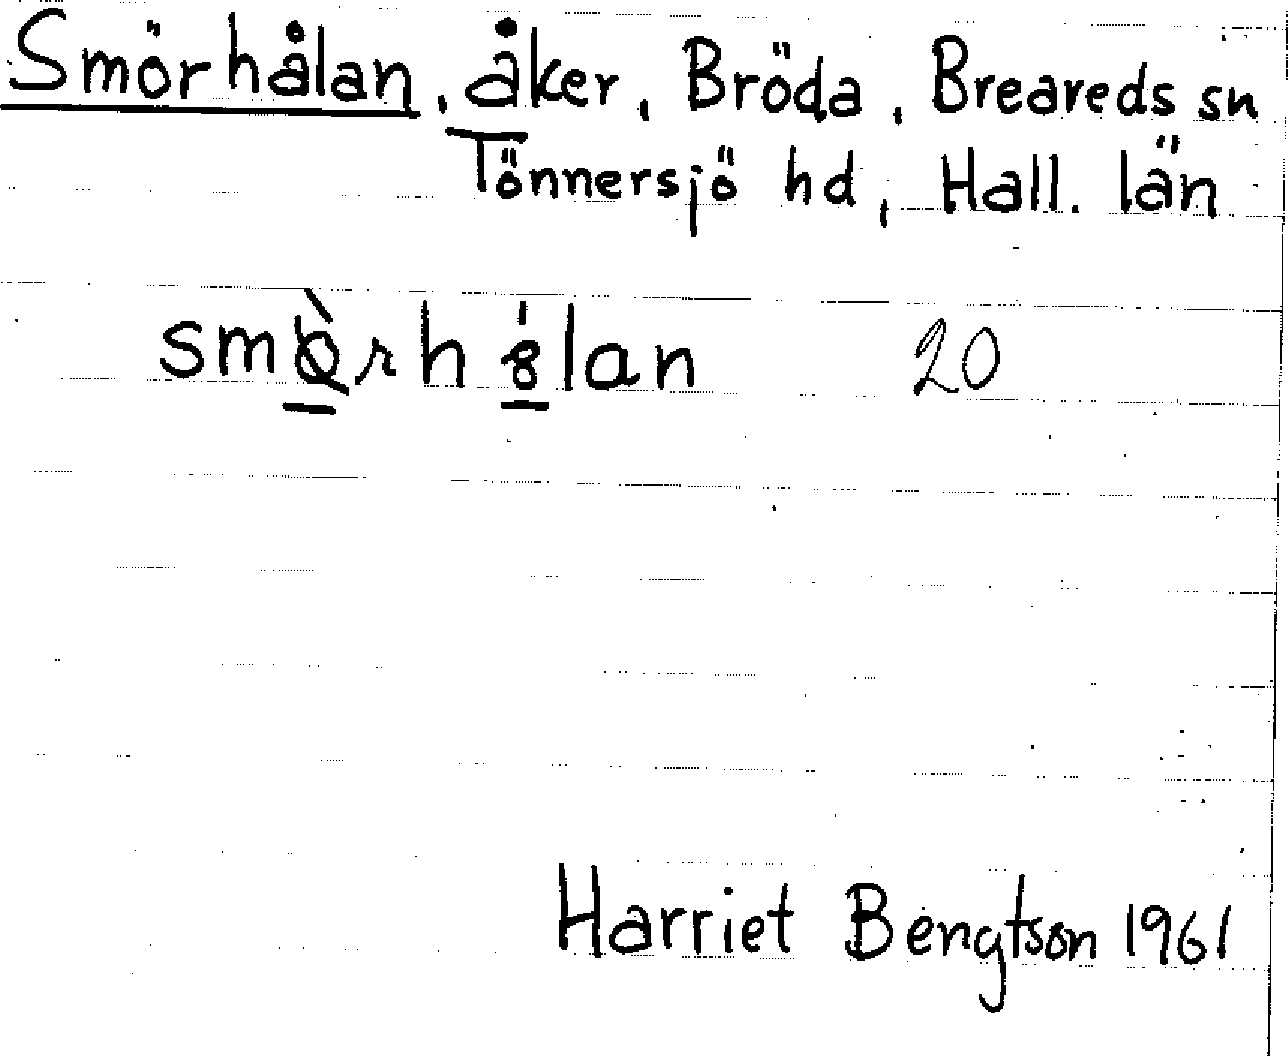 Smörhålan, åker, Bröda, Breareds sn
Tönnersjö hd, Hall. län
20
Harriet Bengtson 1961